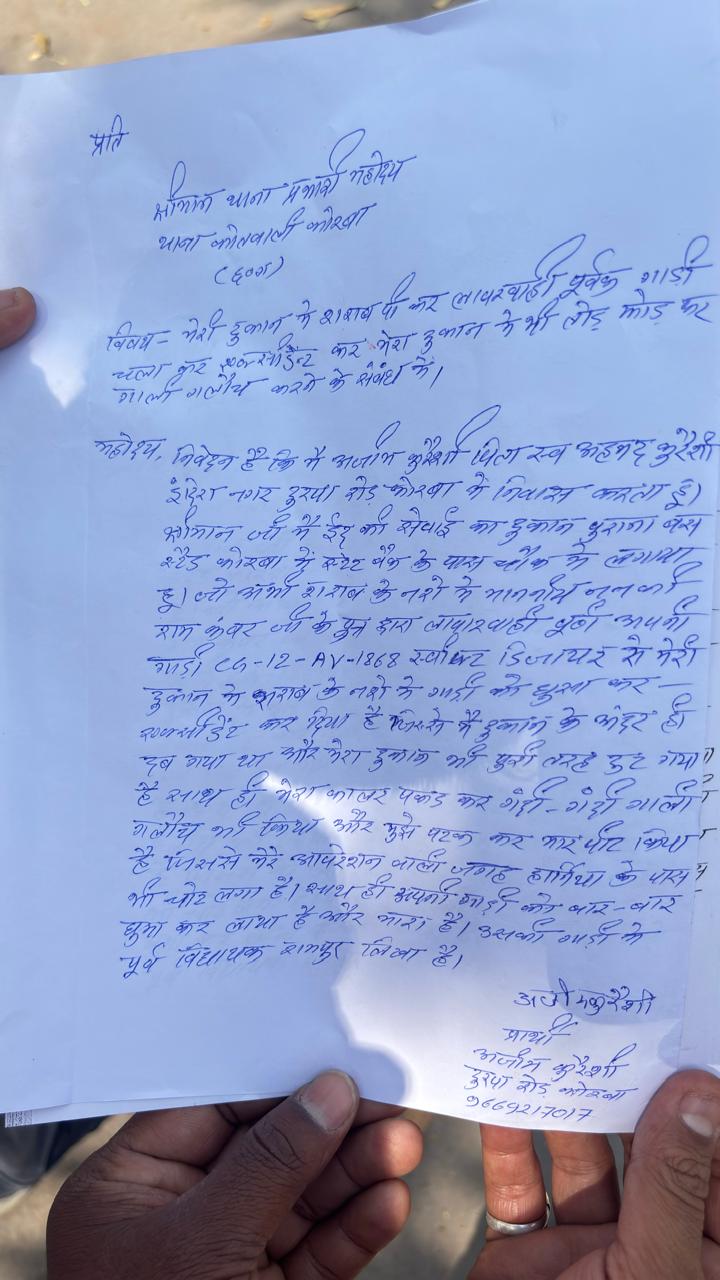 प्रति
श्रीमान थाना प्रभारी महोदय
थाना कोतवाली कोरबा
(छ०ग)
विषय- मेरी दुकान मे शराब पी कर लापरवाही पूर्वक गाडी
चला कर एक्सीडेंट कर मेरा दुकान मे भी तोड़ फोड़ कर
गाली गलौच करने के संबंध में।
महोदय, निवेदन है कि मै अजीम कुरैशी पिता स्व अहमद कुरैशी
इंदिरा नगर दुरपा रोड़ कोरबा मे निवास करता हूं।
श्रीमान जी मै ईद की सेवाई का दुकान पुराना बस
स्टैंड कोरबा में स्टेट बैंक के पास चौक मे लगाया
हू। जो अभी शराब के नशे मे माननीय ननकी
राम कंवर जी के पुत्र द्वारा लापरवाही पूर्वक अपनी
गाडी CG-12-AV-1868 स्वीफ्ट डिजायर से मेरी
दुकान मे शराब के नशे मे गाडी को घुसा कर-
एक्सीडेंट कर दिया है जिससे मै दुकान के अंदर ही
दब गया था और मेरा दुकान भी पुरी तरह टुट गया
है साथ ही मेरा कालर पकड कर गंदी-गंदी गाली
गलौच भी किया और मुझे पटक कर मार पीट किया
है जिससे मेरे आपरेशन वाली जगह हार्निया के पास
भी चोट लगा है। साथ ही अपनी गाडी को बार-बार
घुमा कर लाया है और मारा है। उसकी गाडी मे
पूर्व विधायक रामपुर लिखा है।
अजीम कुरैशी
प्रार्थी
अजीम कुरैशी
दुरपा रोड़ कोरबा
9669217017